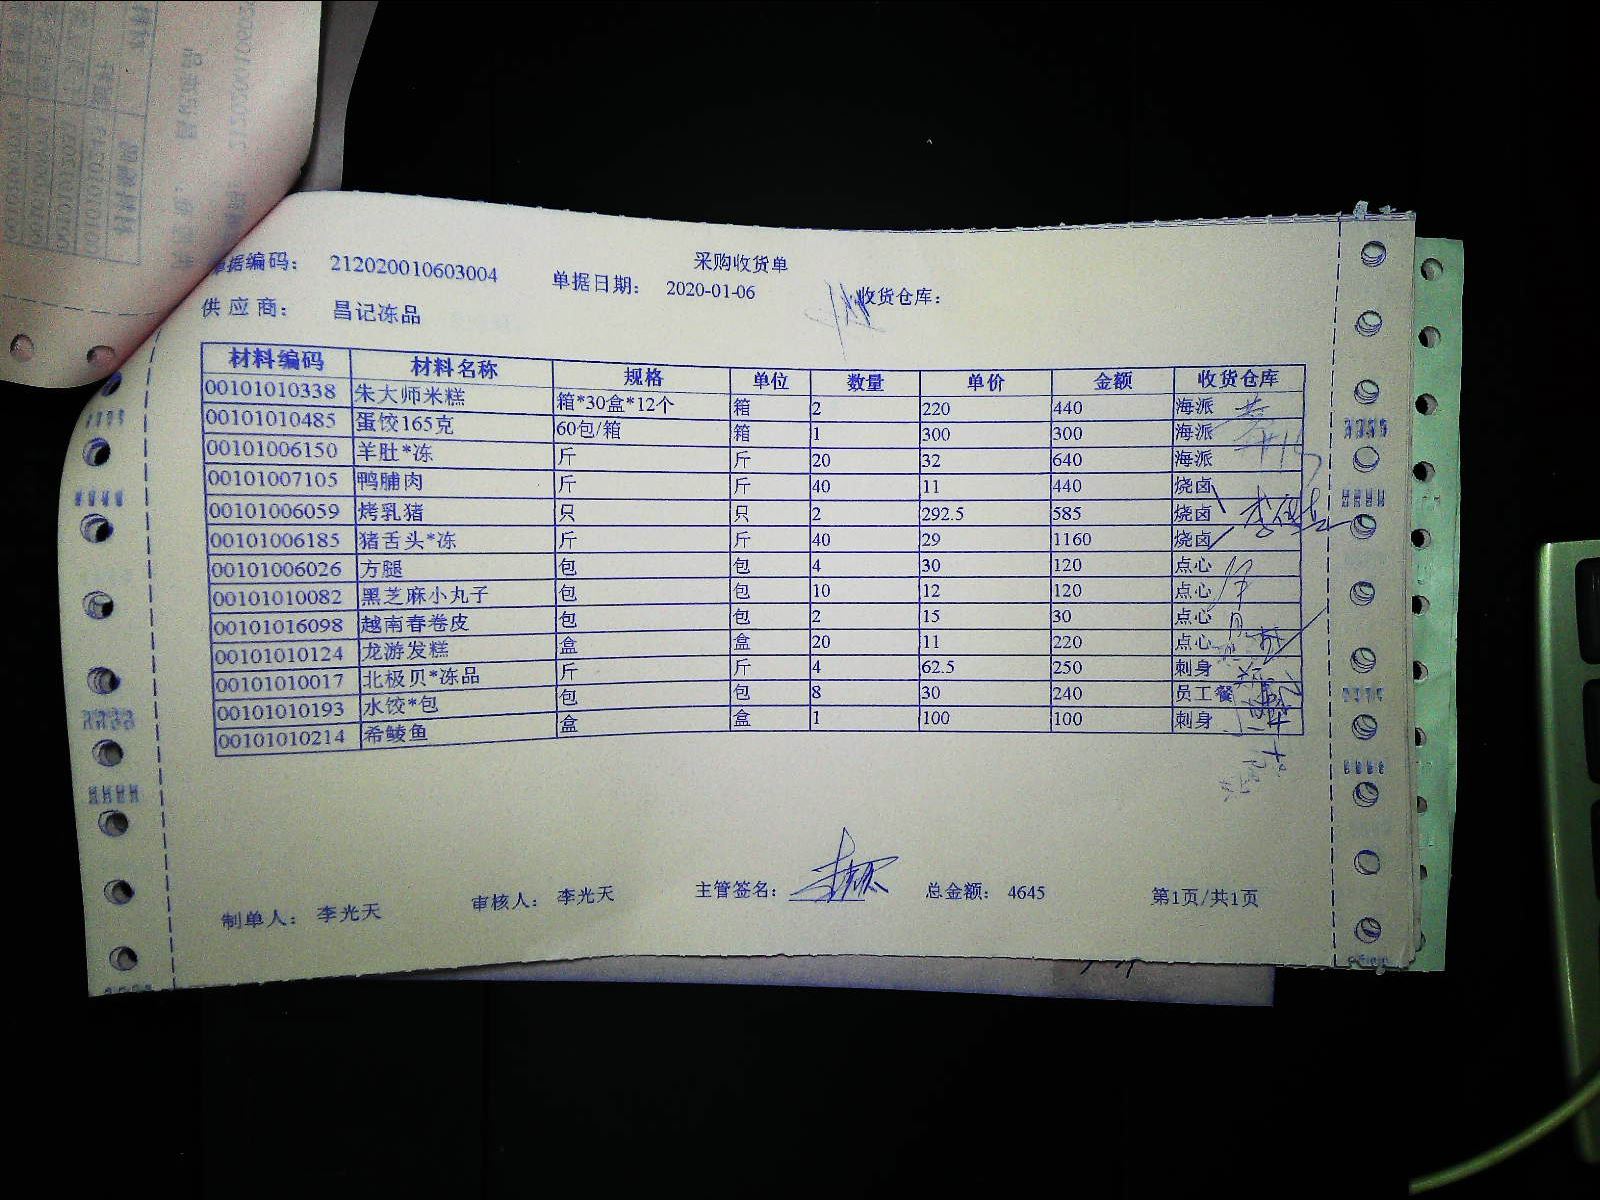 采购收货单
单据编码： 212020010603004 单据日期： 2020-01-06 收货仓库：
供应商： 昌记冻品
材料编码 材料名称 规格 单位 数量 单价 金额 收货仓库
00101010338 朱大师米糕 箱*30盒*12个 箱 2 220 440 海派
00101010485 蛋饺165克 60包/箱 箱 1 300 300 海派
00101006150 羊肚*冻 斤 斤 20 32 640 海派
00101007105 鸭脯肉 斤 斤 40 11 440 烧卤
00101006059 烤乳猪 只 只 2 292.5 585 烧卤
00101006185 猪舌头*冻 斤 斤 40 29 1160 烧卤
00101006026 方腿 包 包 4 30 120 点心
00101010082 黑芝麻小丸子 包 包 10 12 120 点心
00101016098 越南春卷皮 包 包 2 15 30 点心
00101010124 龙游发糕 盒 盒 20 11 220 点心
00101010017 北极贝*冻品 斤 斤 4 62.5 250 刺身
00101010193 水饺*包 包 包 8 30 240 员工餐
00101010214 希鲮鱼 盒 盒 1 100 100 刺身
制单人： 李光天 审核人： 李光天 主管签名： 总金额： 4645 第1页/共1页